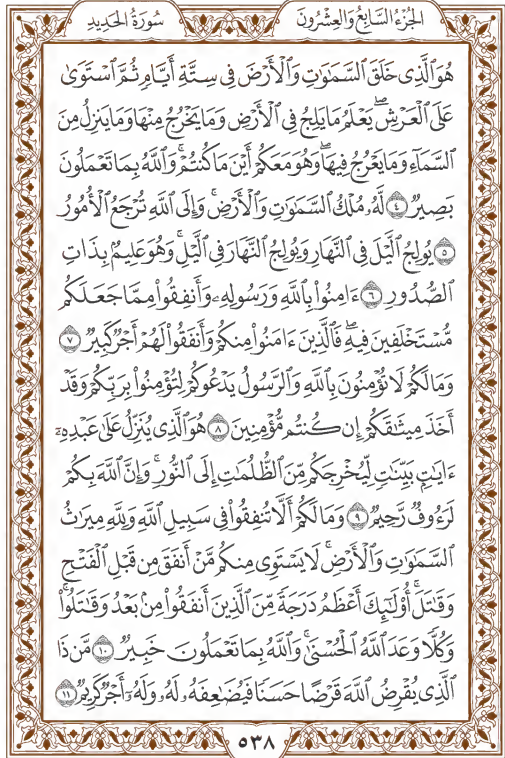 الجُزْءُ السَّابِعُ وَالعِشْرُونَ
سُورَةُ الحَدِيدِ
هُوَ ٱلَّذِى خَلَقَ ٱلسَّمَٰوَٰتِ وَٱلْأَرْضَ فِى سِتَّةِ أَيَّامٍ ثُمَّ ٱسْتَوَىٰ
عَلَى ٱلْعَرْشِۖ يَعْلَمُ مَا يَلِجُ فِى ٱلْأَرْضِ وَمَا يَخْرُجُ مِنْهَا وَمَا يَنزِلُ مِنَ
ٱلسَّمَآءِ وَمَا يَعْرُجُ فِيهَاۖ وَهُوَ مَعَكُمْ أَيْنَ مَا كُنتُمْۚ وَٱللَّهُ بِمَا تَعْمَلُونَ
بَصِيرٌ ٤ لَّهُۥ مُلْكُ ٱلسَّمَٰوَٰتِ وَٱلْأَرْضِۚ وَإِلَى ٱللَّهِ تُرْجَعُ ٱلْأُمُورُ
٥ يُولِجُ ٱلَّيْلَ فِى ٱلنَّهَارِ وَيُولِجُ ٱلنَّهَارَ فِى ٱلَّيْلِۚ وَهُوَ عَلِيمٌۢ بِذَاتِ
ٱلصُّدُورِ ٦ ءَامِنُوا۟ بِٱللَّهِ وَرَسُولِهِۦ وَأَنفِقُوا۟ مِمَّا جَعَلَكُم
مُّسْتَخْلَفِينَ فِيهِۖ فَٱلَّذِينَ ءَامَنُوا۟ مِنكُمْ وَأَنفَقُوا۟ لَهُمْ أَجْرٌ كَبِيرٌ ٧
وَمَا لَكُمْ لَا تُؤْمِنُونَ بِٱللَّهِۙ وَٱلرَّسُولُ يَدْعُوكُمْ لِتُؤْمِنُوا۟ بِرَبِّكُمْ وَقَدْ
أَخَذَ مِيثَٰقَكُمْ إِن كُنتُم مُّؤْمِنِينَ ٨ هُوَ ٱلَّذِى يُنَزِّلُ عَلَىٰ عَبْدِهِۦٓ
ءَايَٰتٍۭ بَيِّنَٰتٍ لِّيُخْرِجَكُم مِّنَ ٱلظُّلُمَٰتِ إِلَى ٱلنُّورِۚ وَإِنَّ ٱللَّهَ بِكُمْ
لَرَءُوفٌ رَّحِيمٌ ٩ وَمَا لَكُمْ أَلَّا تُنفِقُوا۟ فِى سَبِيلِ ٱللَّهِ وَلِلَّهِ مِيرَٰثُ
ٱلسَّمَٰوَٰتِ وَٱلْأَرْضِۚ لَا يَسْتَوِى مِنكُم مَّنْ أَنفَقَ مِن قَبْلِ ٱلْفَتْحِ
وَقَٰتَلَۚ أُو۟لَٰٓئِكَ أَعْظَمُ دَرَجَةً مِّنَ ٱلَّذِينَ أَنفَقُوا۟ مِنۢ بَعْدُ وَقَٰتَلُوا۟ۚ
وَكُلًّا وَعَدَ ٱللَّهُ ٱلْحُسْنَىٰۚ وَٱللَّهُ بِمَا تَعْمَلُونَ خَبِيرٌ ١٠ مَّن ذَا
ٱلَّذِى يُقْرِضُ ٱللَّهَ قَرْضًا حَسَنًا فَيُضَٰعِفَهُۥ لَهُۥ وَلَهُۥٓ أَجْرٌ كَرِيمٌ ١١
٥٣٨